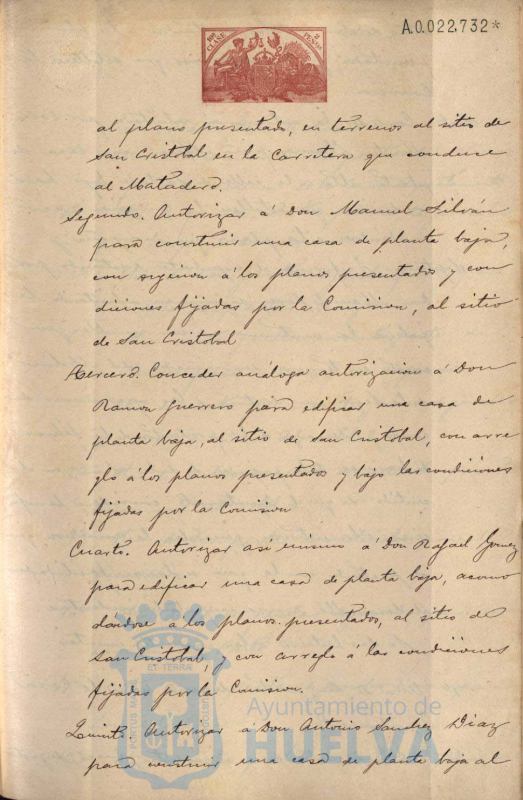 A.0.022.732*
10ª CLASE
2 PESETAS
al plano presentado, en terrenos al sitio de
San Cristobal en la Carretera que conduce
al Matadero.
Segundo. Autorizar á Don Manuel Silván
para construir una casa de planta baja,
con sugecion á los planos presentados y con
diciones fijadas por la Comision, al sitio
de San Cristobal
Tercero. Conceder análoga autorizacion á Don
Ramon Guerrero para edificar una casa de
planta baja, al sitio de San Cristobal, con arre
glo á los planos presentados y bajo las condiciones
fijadas por la Comision
Cuarto. Autorizar asi mismo á Don Rafael Gomez
para edificar una casa de planta baja, acomo
dandose a los planos presentados, al sitio de
San Cristobal, y con arreglo á las condiciones
fijadas por la Comision.
Quinto. Autorizar á Don Antonio Sanchez Diaz
para construir una casa de planta baja al
PORTUS MARIS ET TERRÆ CUSTODIA
Ayuntamiento de
HUELVA